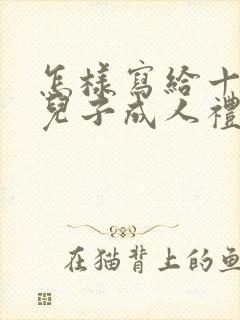 怎樣寫給十
兒子成人禮
在猫背上的鱼